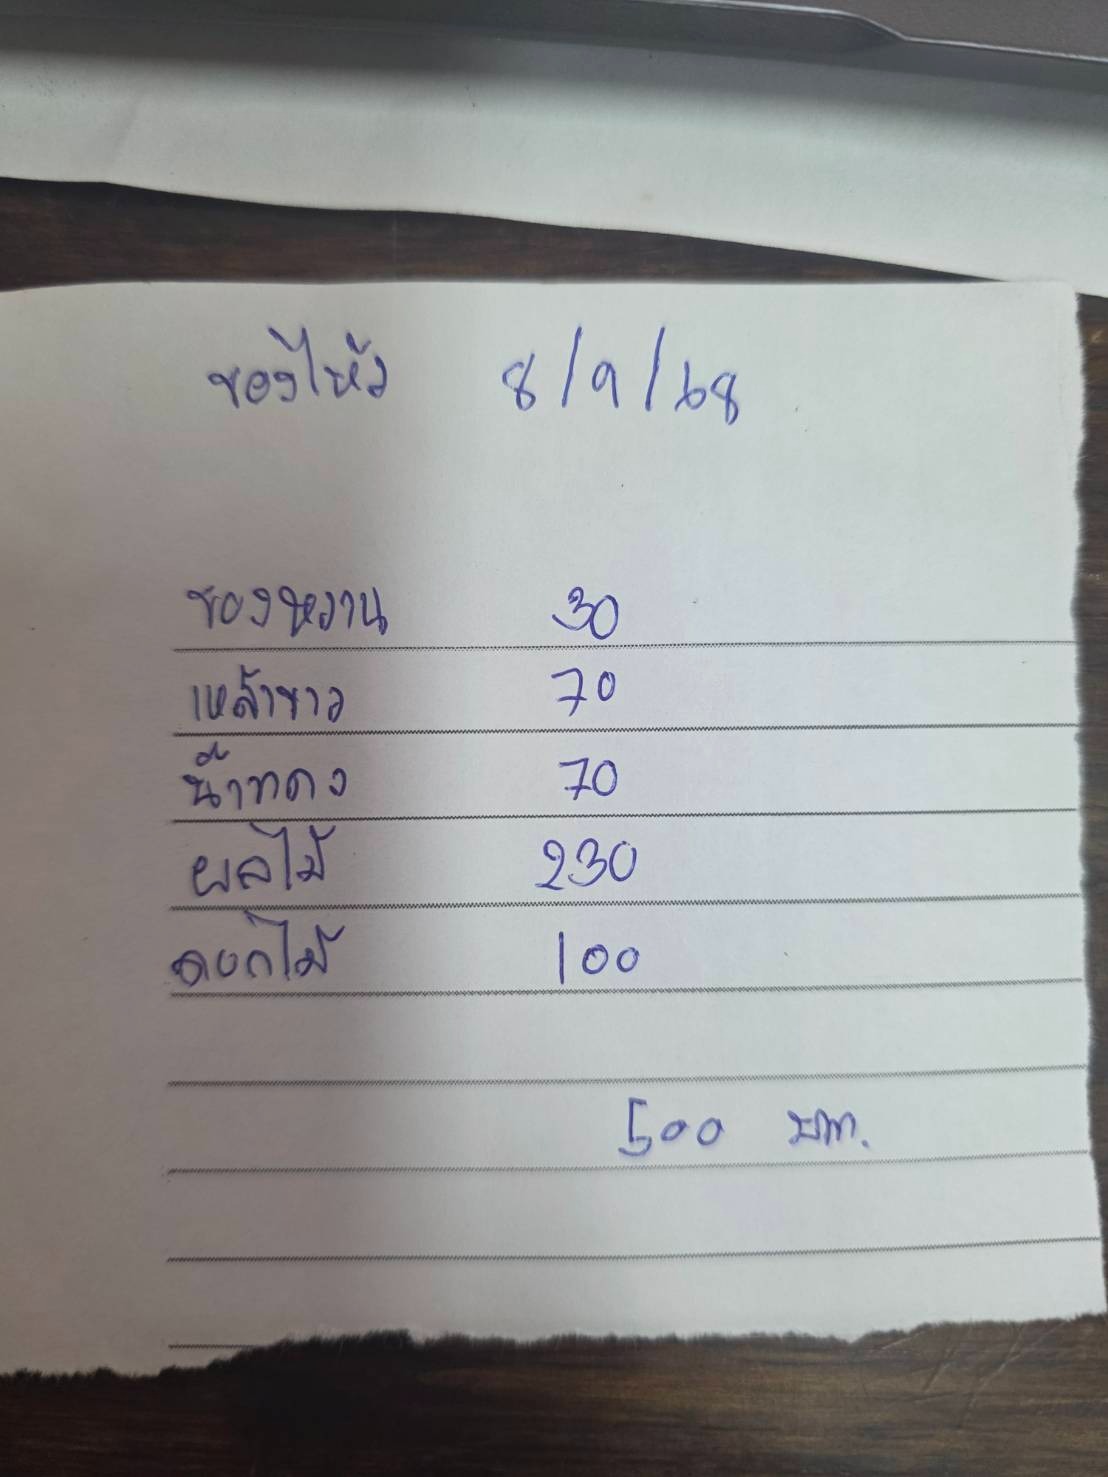 ของไหว้ 8/9/68
ของหวาน 30
เหล้าขาว 70
น้ำแดง 70
ผลไม้ 230
ดอกไม้ 100
500 บาท.